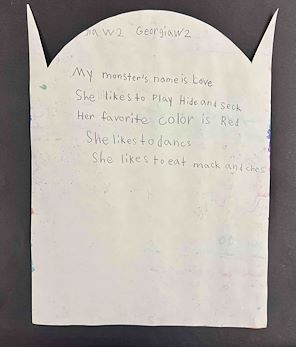 iaw2 Georgiaw2
My monster's name is Love
She likes to Play Hide and seck
Her favorite color is Red
She likes to dancs
She likes to eat mack and ches